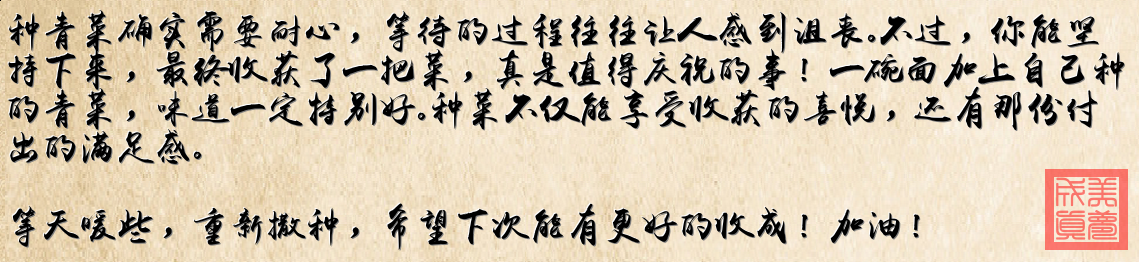 种青菜确实需要耐心，等待的过程往往让人感到沮丧。不过，你能坚
持下来，最终收获了一把菜，真是值得庆祝的事！一碗面加上自己种
的青菜，味道一定特别好。种菜不仅能享受收获的喜悦，还有那份付
出的满足感。
等天暖些，重新撒种，希望下次能有更好的收成！加油！
美梦成真